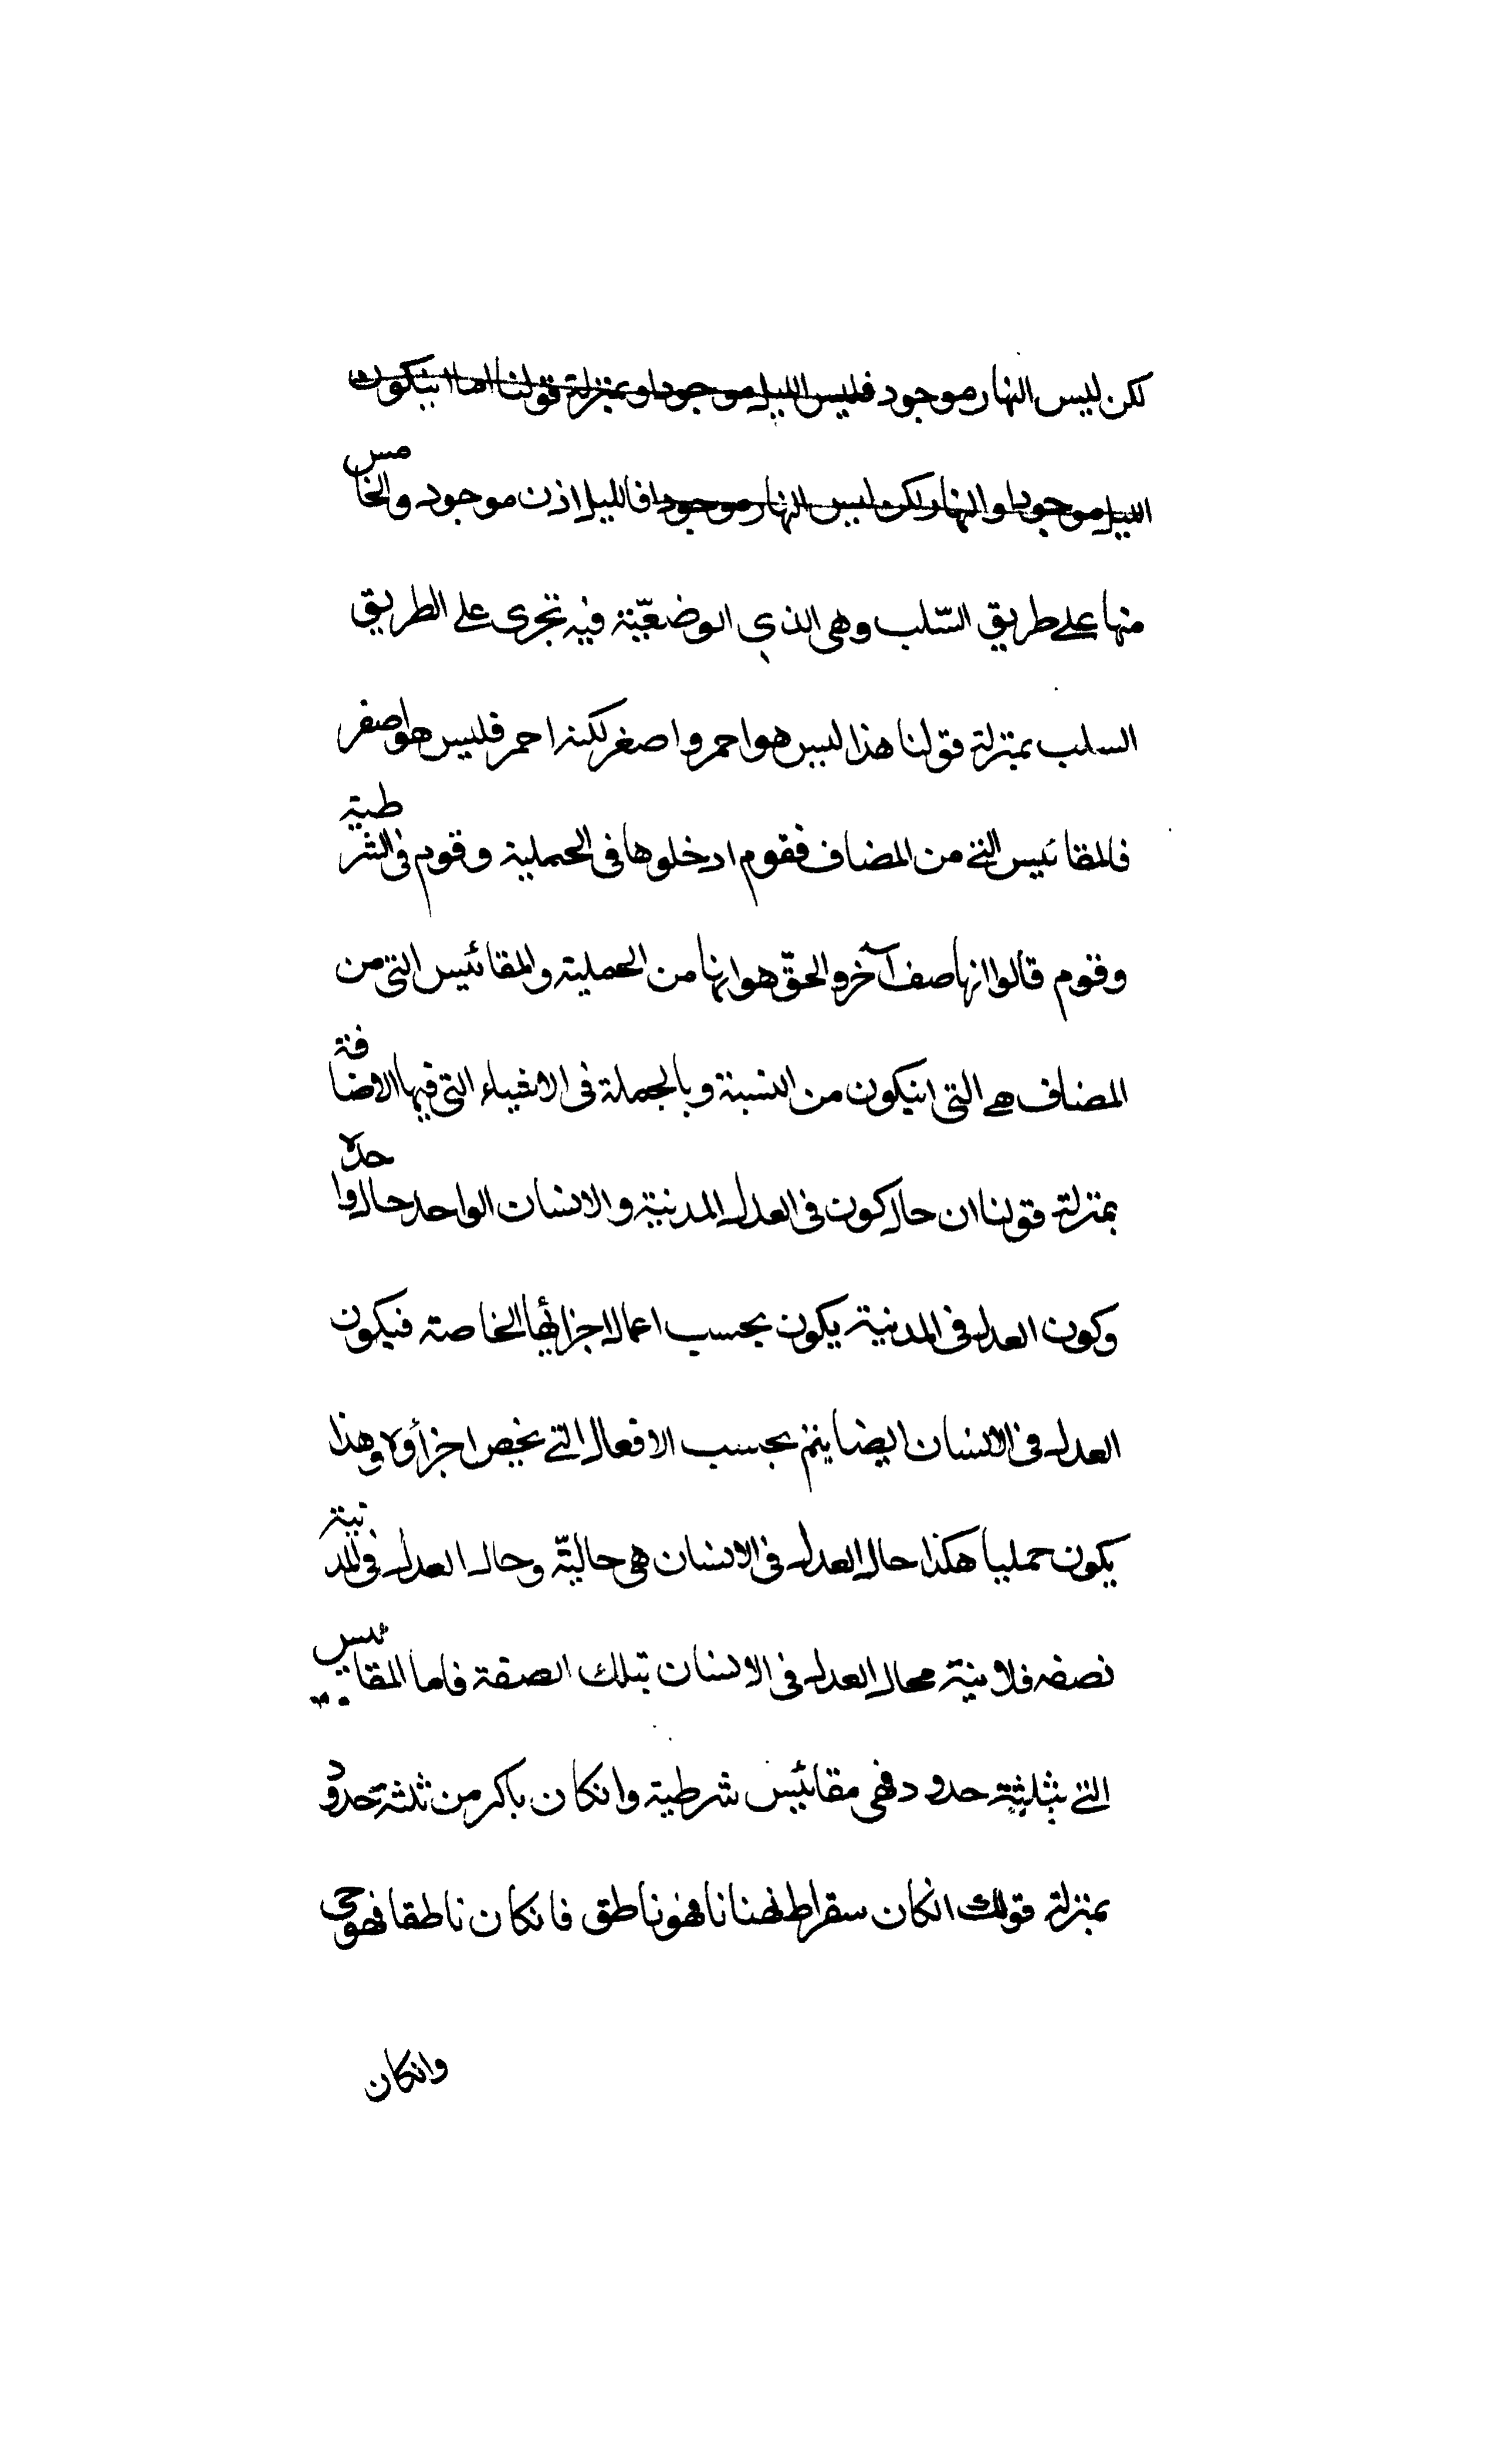 لكن ليس النهار موجود فليس الليل موجودا وبمنزلة قولنا اما انيكون
الليل موجودا والنهار لكن ليس النهار موجودا فالليل اذن موجود والخامس
منها على طريق السّلب وهى الذي الوضعيّة فيه تجرى على الطريق
السلب بمنزلة قولنا هذا ليس هو احمر واصفر لكنه احمر فليس هو اصفر
فالمقائيس التى من المضاف فقوم ادخلوها فى الحملية وقوم فى الشرطية
وقوم قالوا انها صف آخر والحقّ هو انها من الحملية والمقائيس التى من
المضاف هى التى انيكون من النسبة وبالجملة فى الاشياء التى فيها الاضافة
بمنزلة قولنا ان حال كون فى العدل المدنية والانسان الواحد حال واحدة
وكون العدل فى المدنية يكون بحسب اعمال اجزائها الخاصة فيكون
العدل فى الانسان ايضا يتم بحسب الافعال التى يخص اجزأوه وهذا
يكون حمليا هكذا حال العدل فى الانسان هى حاليّة وحال العدل فى المدنية
نصفه فلانية فحال العدل فى الانسان بتلك الصفة فاما المقائيس
التى بثلثة حدود فهى مقائيس شرطية وانكان باكر من ثلثة حدود
بمنزلة قولك انكان سقراط نهنانا فهو ناطق فانكان ناطقا فهو حى
وانكان